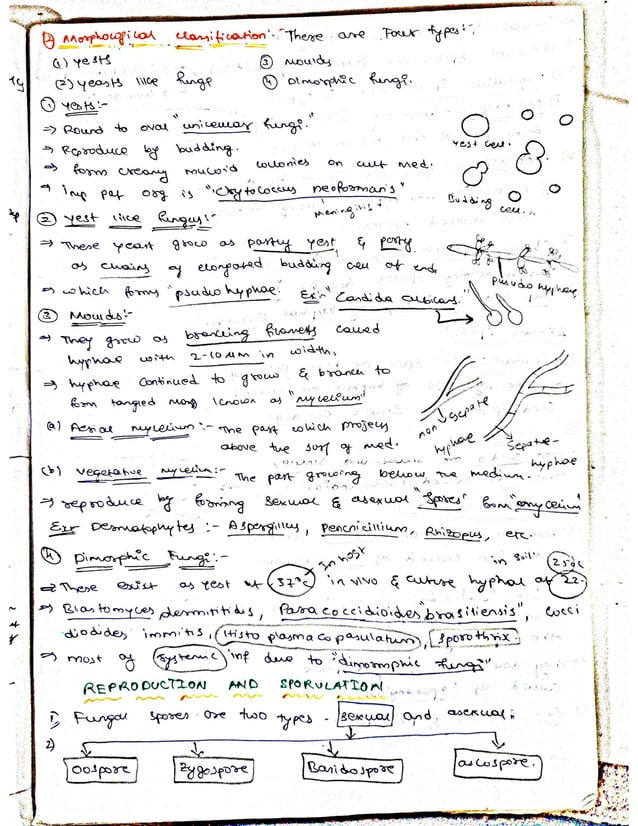 ② Morphological classification:- There are Four types:-
(1) yests ③ moulds
(2) yeasts like fungi ④ Dimorphic fungi.
① Yests:-
⇒ Round to oval "unicellular fungi."
⇒ Reproduce by budding.
⇒ form creamy mucoid colonies on cult med.
⇒ Imp pat org is "Cryptococcus neoformans"
meningitis
yest cell.
Budding cell...
② yest like fungus:-
⇒ These yeast grow as partly yest & partly
as chains of elongated budding cell at end
⇒ which forms "pseudo hyphae. Ex:- "Candida albicans."
pseudo hyphae
③ Moulds:-
⇒ They grow as branching filaments called
hyphae with 2-10 µm in width.
⇒ hyphae continued to grow & branch to
form tangled mass known as "mycelium"
non sepate hyphae
Sepate- hyphae
(a) Aerial mycelium:- The part which projects
above the surf of med.
(b) Vegetative mycelium:- The part growing below the medium.
⇒ reproduce by forming sexual & asexual "spores" from "mycelium"
Ex:- Dermatophytes :- Aspergillus, penicillium, Rhizopus, etc.
④ Dimorphic Fungi:-
In host in soil 25°c
⇒ These exist as yest at 37°c in vivo & cuture hyphal at 22.
⇒ Blastomyces dermititids, Paracoccidioides "brasiliensis", cocci
diodides immitis, Histo plasma copasulatum, Sporothrix.
⇒ most of systemic inf due to "dimormphic fungi"
REPRODUCTION AND SPORULATION
1) Fungal spores are two types - sexual and asexual:
2)
Oospore Zygospore Basidospore ascospore.